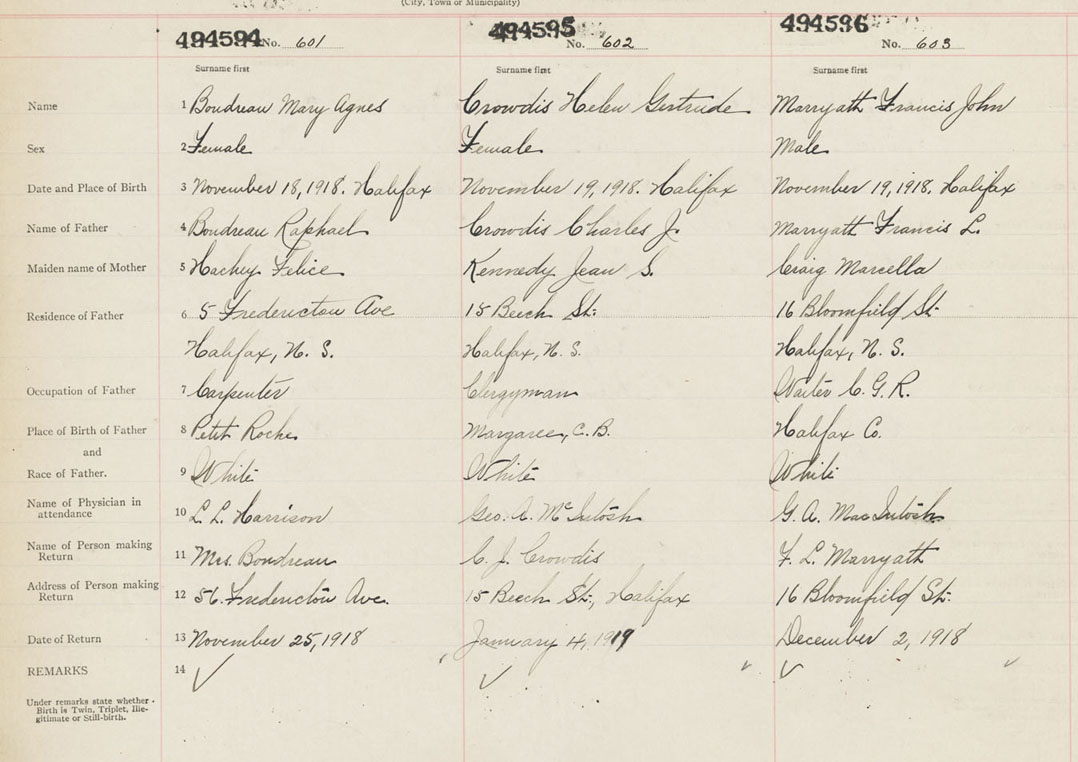 (City, Town or Municipality)
494594 No. 601 494595 No. 602 494596 No. 603
Surname first Surname first Surname first
Name 1 Boudreau Mary Agnes Crowdis Helen Gertrude Marryath Francis John
Sex 2 Female Female Male
Date and Place of Birth 3 November 18, 1918. Halifax November 19, 1918. Halifax November 19, 1918. Halifax
Name of Father 4 Boudreau Raphael Crowdis Charles J. Marryath Francis L.
Maiden name of Mother 5 Hachey Felice Kennedy Jean S. Craig Marcella
Residence of Father 6 5 Fredericton Ave 15 Beech St: 16 Bloomfield St:
Halifax, N. S. Halifax, N. S. Halifax, N. S.
Occupation of Father 7 Carpenter Clergyman Waiter C. G. R.
Place of Birth of Father 8 Petit Roche Margaree, C. B. Halifax Co.
and
Race of Father. 9 White White White
Name of Physician in attendance 10 L. L. Harrison Geo. A. McIntosh G. A. MacIntosh
Name of Person making Return 11 Mrs. Boudreau C. J. Crowdis F. L. Marryath
Address of Person making Return 12 56 Fredericton Ave. 15 Beech St:, Halifax 16 Bloomfield St:
Date of Return 13 November 25, 1918 January 4, 1919 December 2, 1918
REMARKS 14 ✓ ✓ ✓
Under remarks state whether
Birth is Twin, Triplet, Ille-
gitimate or Still-birth.